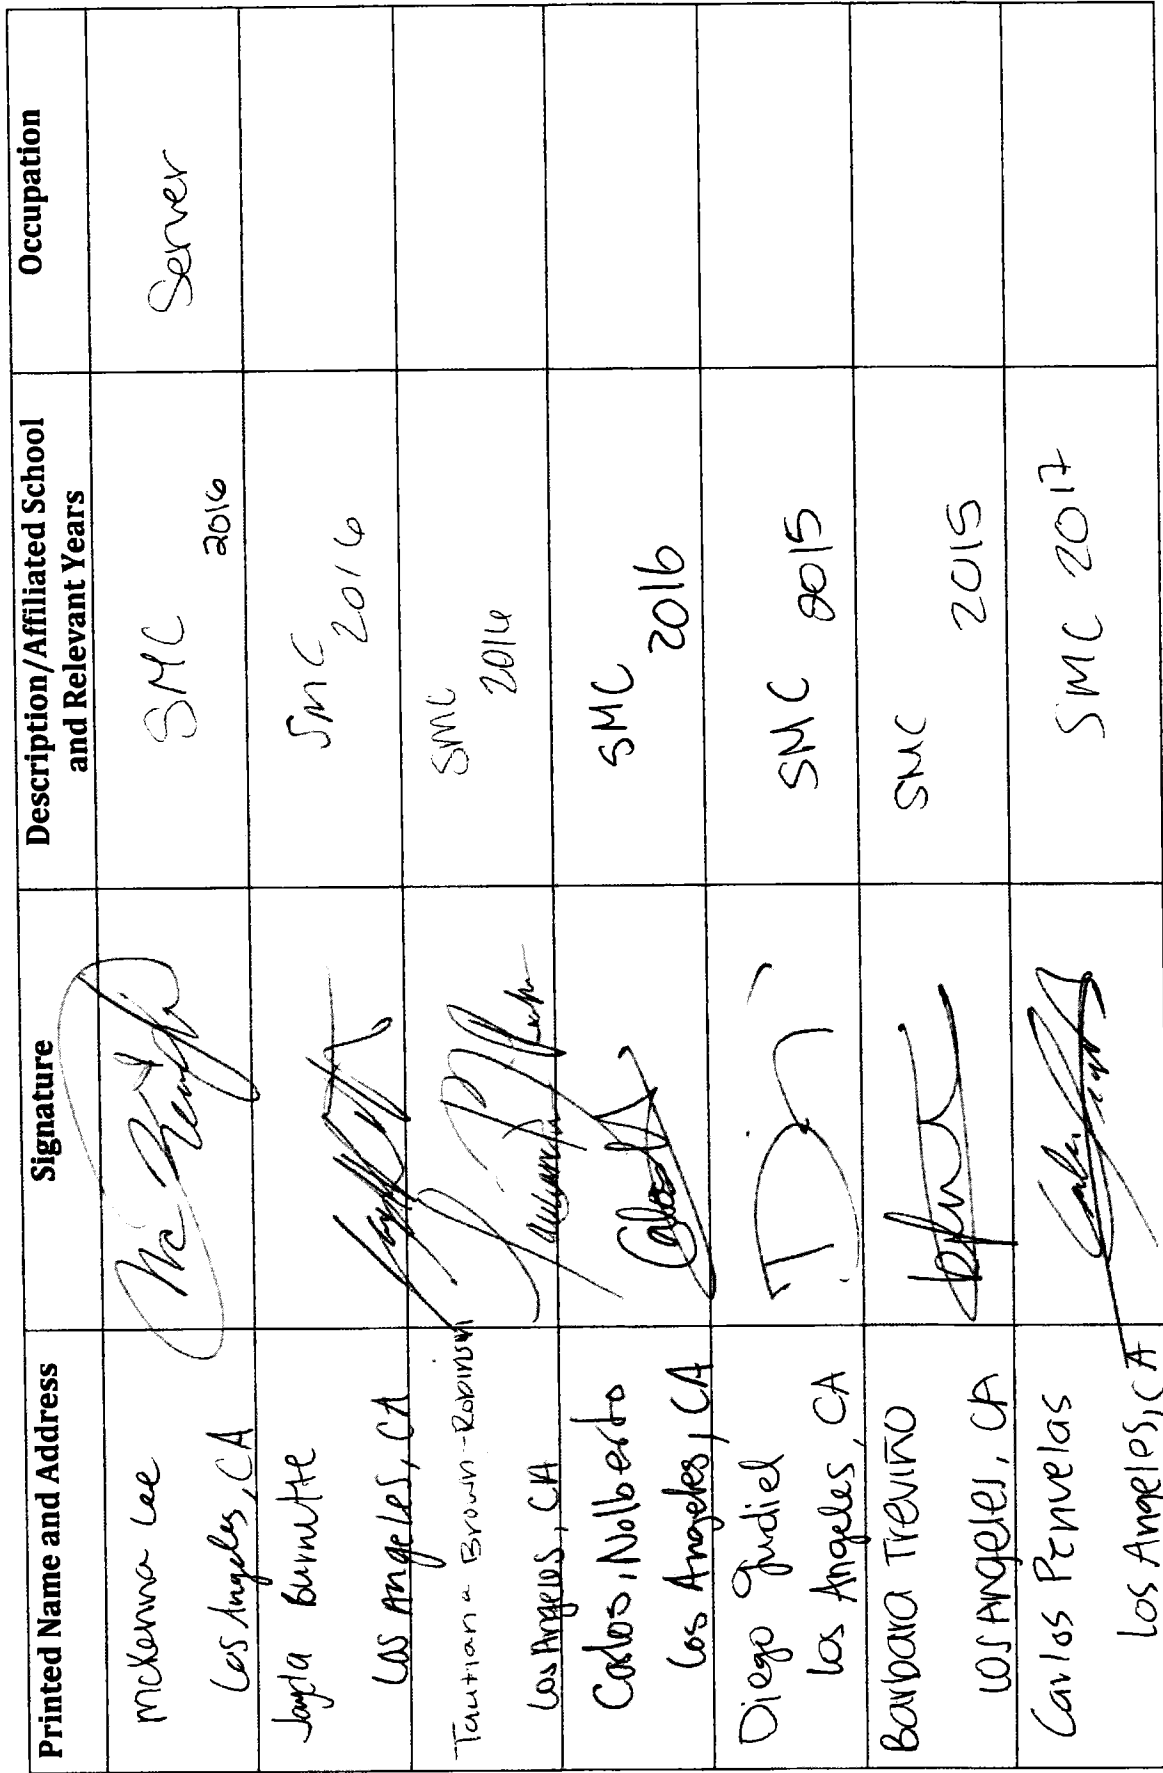 Printed Name and Address
Signature
Description/Affiliated School
and Relevant Years
Occupation
McKenna Lee
Los Angeles, CA
SMC
2016
Server
Jayla Burnutte
Los Angeles, CA
SMC
2016
Brown-Robinson
Los Angeles, CA
SMC
2016
Carlos, Nolberto
Los Angeles, CA
SMC
2016
Diego Gudiel
Los Angeles, CA
SMC 2015
Barbara Treviño
Los Angeles, CA
SMC
2015
Carlos Penuelas
Los Angeles, CA
SMC 2017